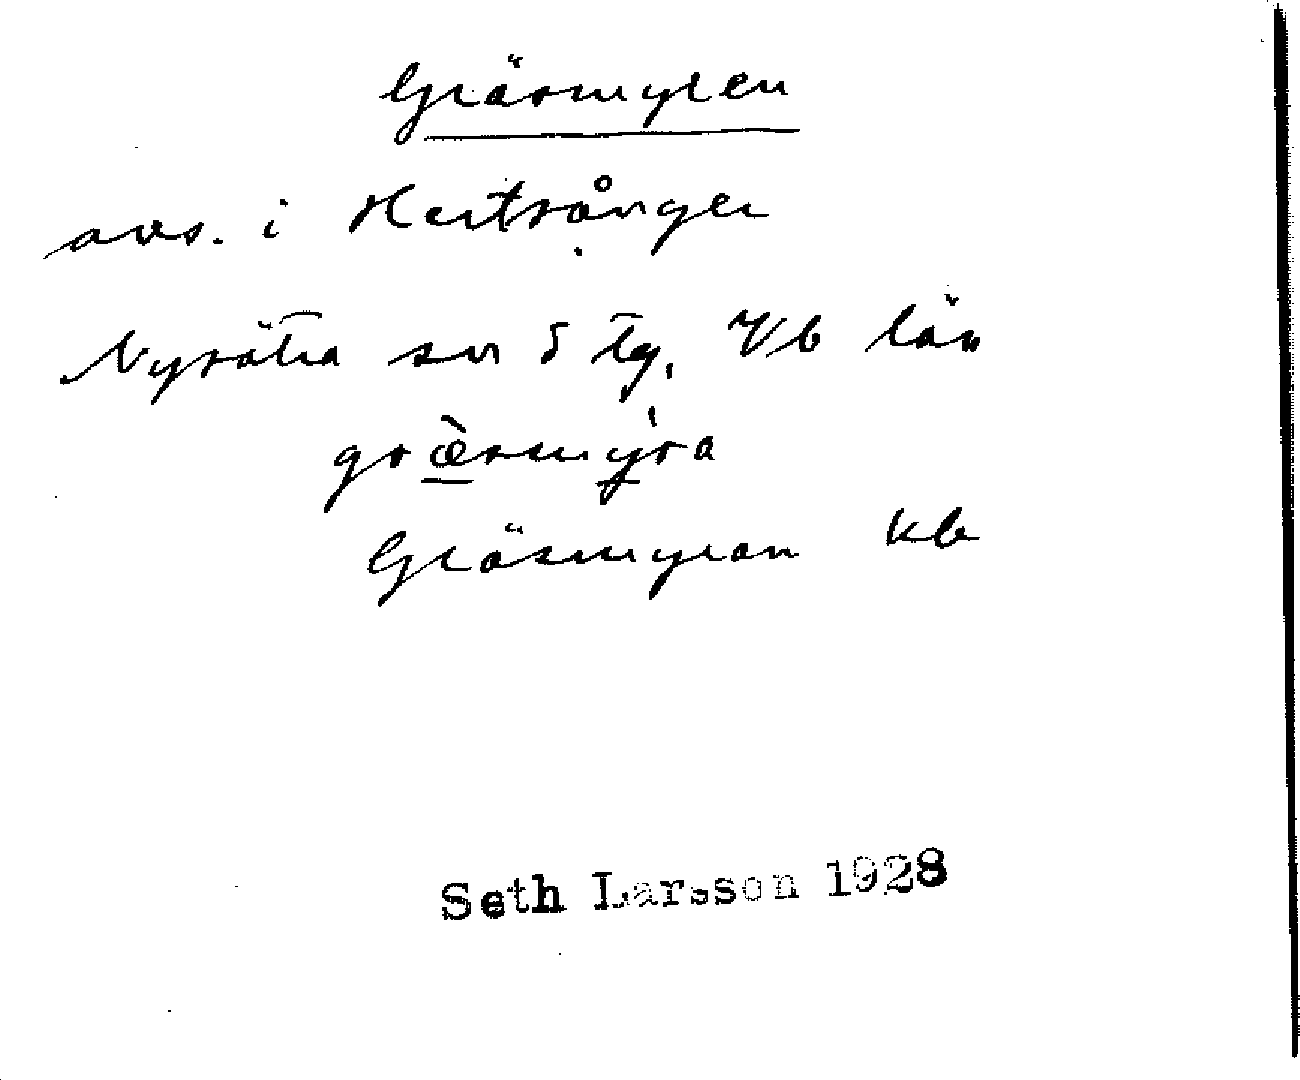 Gräsmyren
avs. i Hertsånger
Nysätra sn S tg. Vb län
græ̀smy̍ra
Gräsmyran kb
Seth Larsson 1928